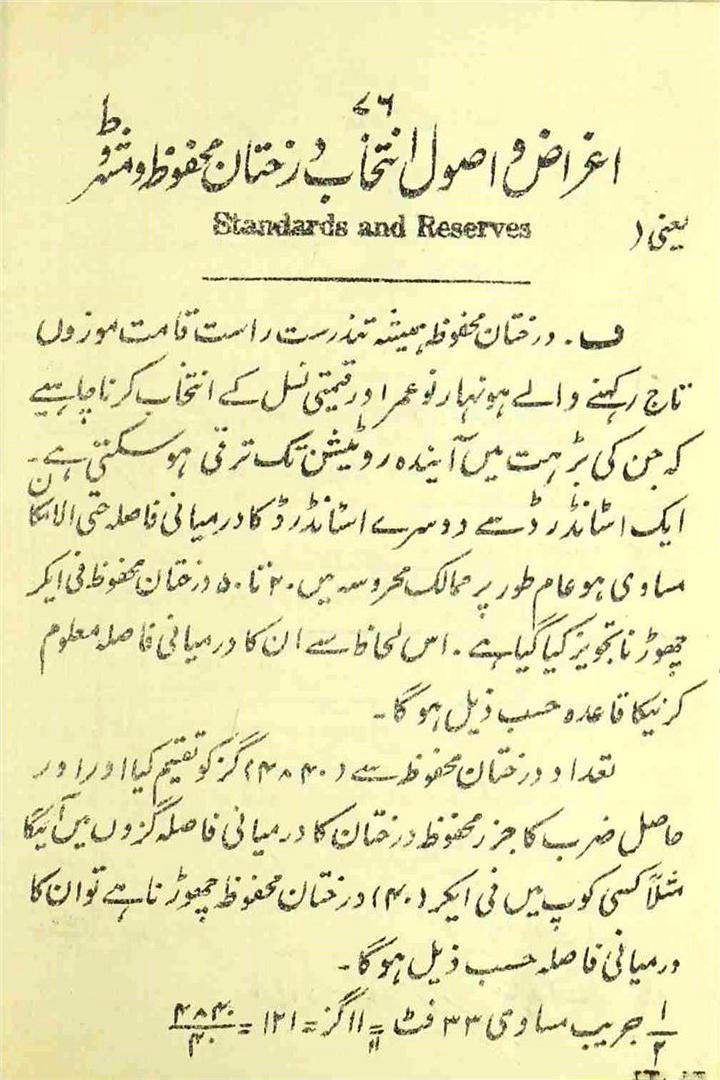 ۷۶
اغراض و اصول انتخاب درختان محفوظ و مشروط
یعنی (Standards and Reserves
ف ۔ درختان محفوظ ہمیشہ تندرست راست قامت موزوں
تاج رکہنے والے ہونہار نو عمر اور قیمتی نسل کے انتخاب کرنا چاہیے
کہ جن کی بڑہت میں آیندہ روٹیشن تک ترقی ہو سکتی ہے۔
ایک اسٹانڈرڈ سے دوسرے اسٹانڈرڈ کا درمیانی فاصلہ حتی الامکان
مساوی ہو عام طور پر ممالک محروسہ میں ۲۰ تا ۵۰ درختان محفوظ فی ایکر
چھوڑنا تجویز کیا گیا ہے ۔ اس لحاظ سے ان کا درمیانی فاصلہ معلوم
کرنیکا قاعدہ حسب ذیل ہوگا ۔
تعداد درختان محفوظ سے (۴۸۴۰) گز کو تقیم کیا اور اور
حاصل ضرب کا جزر محفوظ درختان کا درمیانی فاصلہ گزوں میں آئیگا
مثلاً کسی کوپ میں فی ایکر (۴۰) درختان محفوظ چھوڑنا ہے تو ان کا
درمیانی فاصلہ حسب ذیل ہوگا ۔
۱/۲ جریب مساوی ۳۳ فٹ = ۱۱ گز = ۱۲۱ = ۴۸۴۰/۴۰